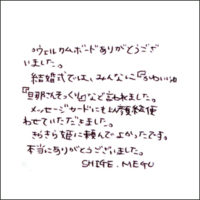 ウェルカムボードありがとうござ
いました。
結婚式では、みんなに『かわいい』
『旦那さんそっくり』など言われました。
メッセージカードにも似顔絵使
わせていただきました。
きらきら姫に頼んでよかったです。
本当にありがとうございました。
SHIGE. MEGU